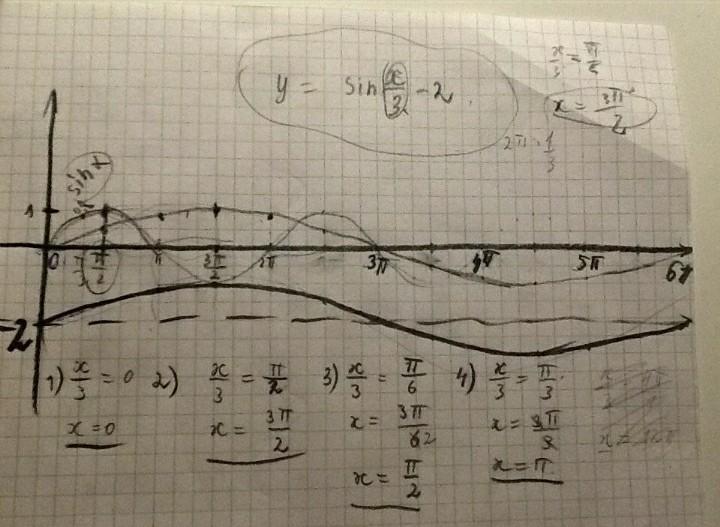 y = sin x/3 - 2
x/3 = π/2
x = 3π/2
2π · 1/3
sin x
1
0 π/3 π/2 π 3π/2 2π 3π 4π 5π 6π
-2
1) x/3 = 0
x = 0
2) x/3 = π/2
x = 3π/2
3) x/3 = π/6
x = 3π/62
x = π/2
4) x/3 = π/3
x = 3π/3
x = π